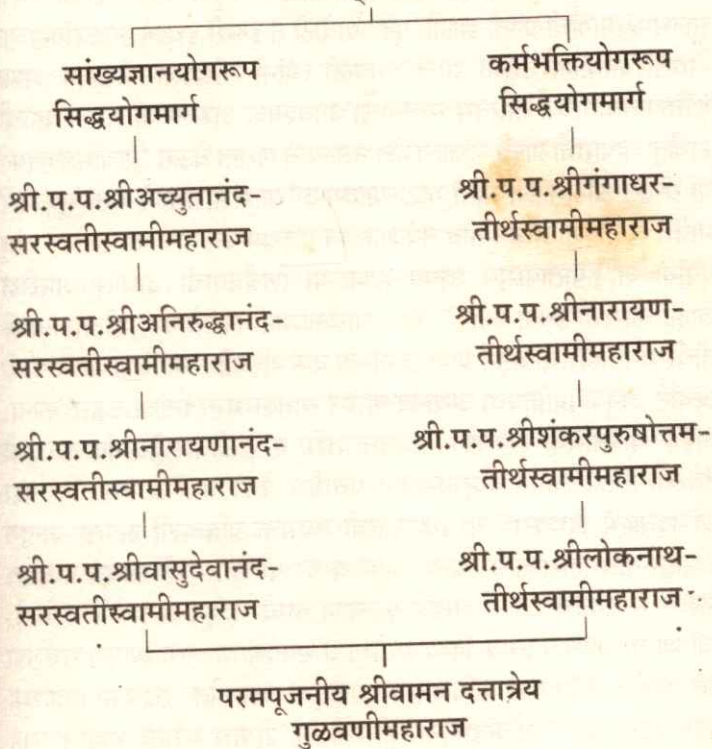 सांख्यज्ञानयोगरूप
सिद्धयोगमार्ग
श्री.प.प.श्रीअच्युतानंद-
सरस्वतीस्वामीमहाराज
श्री.प.प.श्रीअनिरुद्धानंद-
सरस्वतीस्वामीमहाराज
श्री.प.प.श्रीनारायणानंद-
सरस्वतीस्वामीमहाराज
श्री.प.प.श्रीवासुदेवानंद-
सरस्वतीस्वामीमहाराज
कर्मभक्तियोगरूप
सिद्धयोगमार्ग
श्री.प.प.श्रीगंगाधर-
तीर्थस्वामीमहाराज
श्री.प.प.श्रीनारायण-
तीर्थस्वामीमहाराज
श्री.प.प.श्रीशंकरपुरुषोत्तम-
तीर्थस्वामीमहाराज
श्री.प.प.श्रीलोकनाथ-
तीर्थस्वामीमहाराज
परमपूजनीय श्रीवामन दत्तात्रेय
गुळवणीमहाराज